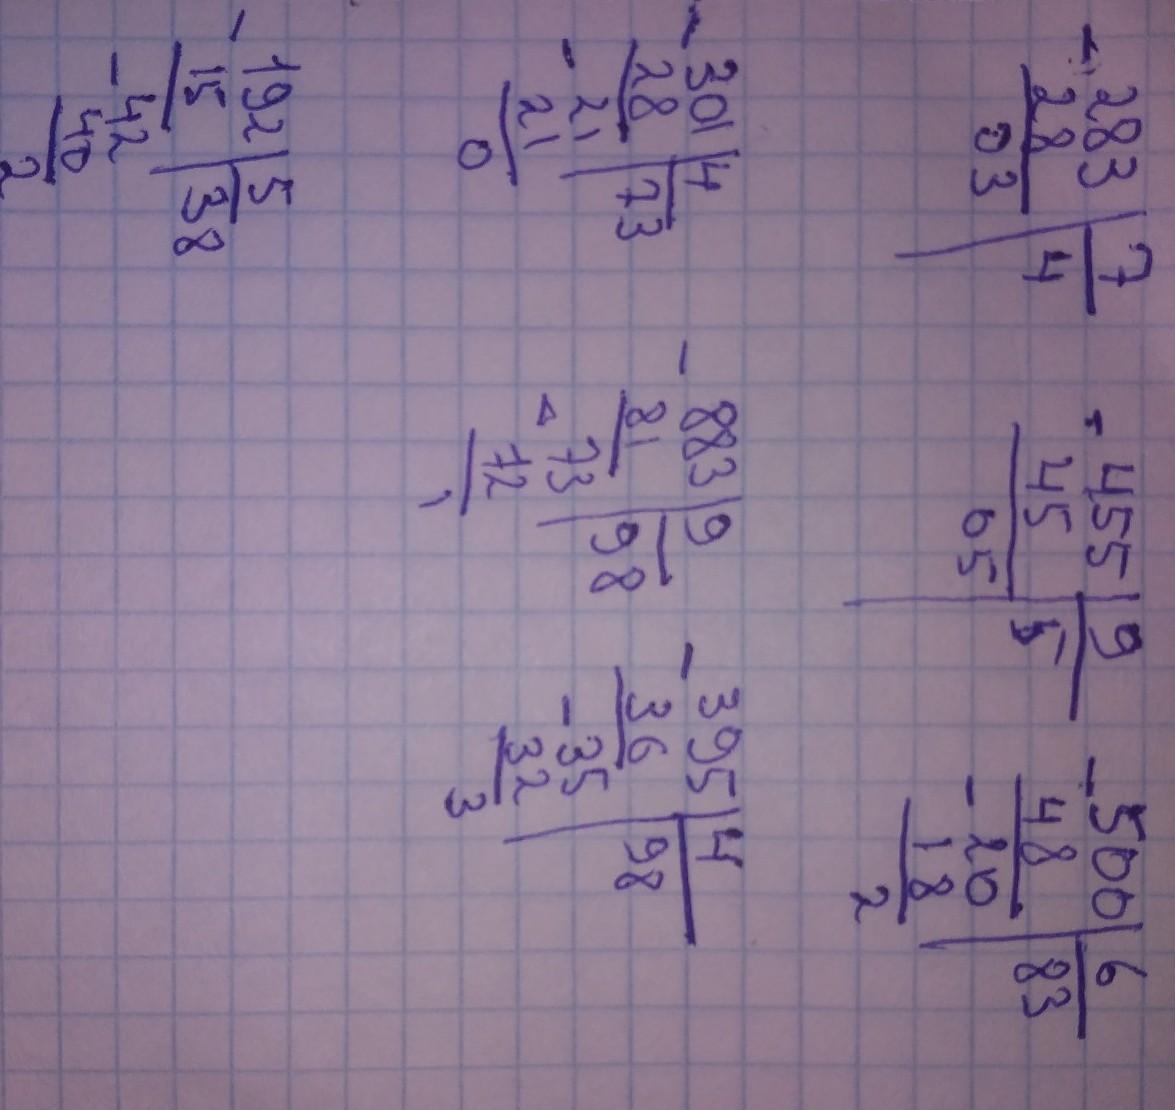 - 283 | 7
28 | 4
03
- 455 | 9
45 | 5
05
- 500 | 6
48 | 83
- 20
18
2
- 301 | 4
28 | 73
- 21
21
0
- 883 | 9
81 | 98
- 73
72
1
- 395 | 4
36 | 98
- 35
32
3
- 192 | 5
15 | 38
- 42
40
2